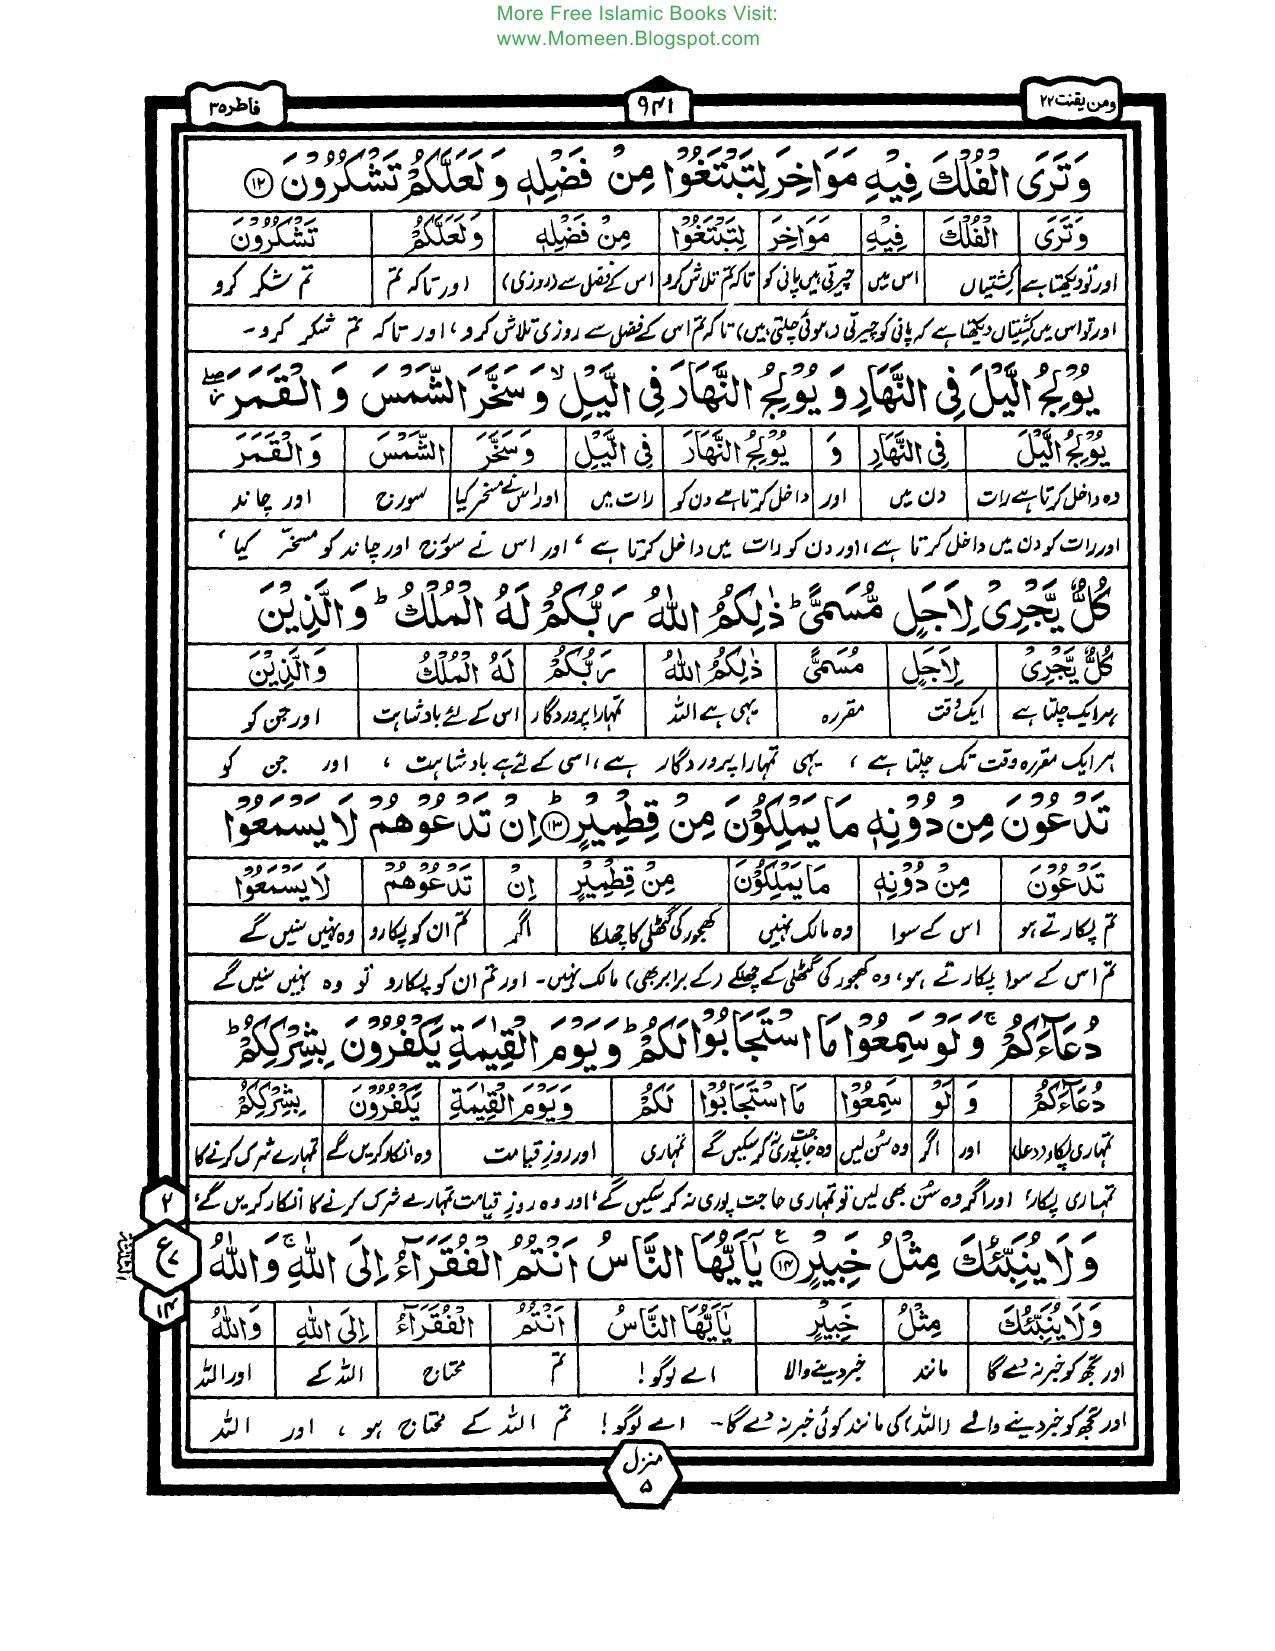 More Free Islamic Books Visit:
www.Momeen.Blogspot.com
ومن يقنت ۲۲
۹۴۱
فاطر ۳۵
وَتَرَى الْفُلْكَ فِيْهِ مَوَاخِرَ لِتَبْتَغُوْا مِنْ فَضْلِهٖ وَلَعَلَّكُمْ تَشْكُرُوْنَ ﴿۱۲﴾
وَتَرَى الْفُلْكَ فِيْهِ مَوَاخِرَ لِتَبْتَغُوْا مِنْ فَضْلِهٖ وَلَعَلَّكُمْ تَشْكُرُوْنَ
اور تو دیکھتا ہے کشتیاں اس میں چیرتی ہیں پانی کو تاکہ تم تلاش کرو اس کے فضل سے (روزی) اور تاکہ تم تم شکر کرو
اور تو اس میں کشتیاں دیکھتا ہے کہ پانی کو چیرتی (ہوئی چلتی ہیں) تاکہ تم اس کے فضل سے روزی تلاش کرو، اور تاکہ تم شکر کرو۔
يُوْلِجُ الَّيْلَ فِى النَّهَارِ وَيُوْلِجُ النَّهَارَ فِى الَّيْلِ ۙ وَسَخَّرَ الشَّمْسَ وَالْقَمَرَ ۖ
يُوْلِجُ الَّيْلَ فِى النَّهَارِ وَ يُوْلِجُ النَّهَارَ فِى الَّيْلِ وَسَخَّرَ الشَّمْسَ وَالْقَمَرَ
وہ داخل کرتا ہے رات دن میں اور داخل کرتا ہے دن کو رات میں اور اس نے مسخر کیا سورج اور چاند
اور رات کو دن میں داخل کرتا ہے، اور دن کو رات میں داخل کرتا ہے، اور اس نے سورج اور چاند کو مسخر کیا،
كُلٌّ يَّجْرِىْ لِاَجَلٍ مُّسَمًّى ؕ ذٰلِكُمُ اللّٰهُ رَبُّكُمْ لَهُ الْمُلْكُ ؕ وَالَّذِيْنَ
كُلٌّ يَّجْرِىْ لِاَجَلٍ مُّسَمًّى ذٰلِكُمُ اللّٰهُ رَبُّكُمْ لَهُ الْمُلْكُ وَالَّذِيْنَ
ہر ایک چلتا ہے ایک وقت مقررہ یہی ہے اللہ تمہارا پروردگار اس کے لئے بادشاہت اور جن کو
ہر ایک مقررہ وقت تک چلتا ہے، یہی تمہارا پروردگار ہے، اسی کے لئے ہے بادشاہت، اور جن کو
تَدْعُوْنَ مِنْ دُوْنِهٖ مَا يَمْلِكُوْنَ مِنْ قِطْمِيْرٍ ؕ ﴿۱۳﴾ اِنْ تَدْعُوْهُمْ لَا يَسْمَعُوْا
تَدْعُوْنَ مِنْ دُوْنِهٖ مَا يَمْلِكُوْنَ مِنْ قِطْمِيْرٍ اِنْ تَدْعُوْهُمْ لَا يَسْمَعُوْا
تم پکارتے ہو اس کے سوا وہ مالک نہیں کھجور کی گٹھلی کا چھلکا اگر تم ان کو پکارو وہ نہیں سنیں گے
تم اس کے سوا پکارتے ہو، وہ کھجور کی گٹھلی کے چھلکے (کے برابر بھی) مالک نہیں۔ اور تم ان کو پکارو تو وہ نہیں سنیں گے
دُعَآءَكُمْ ۚ وَلَوْ سَمِعُوْا مَا اسْتَجَابُوْا لَكُمْ ؕ وَيَوْمَ الْقِيٰمَةِ يَكْفُرُوْنَ بِشِرْكِكُمْ ؕ
دُعَآءَكُمْ وَ لَوْ سَمِعُوْا مَا اسْتَجَابُوْا لَكُمْ وَيَوْمَ الْقِيٰمَةِ يَكْفُرُوْنَ بِشِرْكِكُمْ
تمہاری پکار (دعا) اور اگر وہ سن لیں وہ حاجت پوری نہ کر سکیں گے تمہاری اور روز قیامت وہ انکار کریں گے تمہارے شرک کرنے کا
تمہاری پکار، اور اگر وہ سُن بھی لیں تو تمہاری حاجت پوری نہ کر سکیں گے، اور وہ روزِ قیامت تمہارے شرک کرنے کا انکار کریں گے،
۲
ع
۱۴
وَلَا يُنَبِّئُكَ مِثْلُ خَبِيْرٍ ﴿۱۴﴾ يٰۤاَيُّهَا النَّاسُ اَنْتُمُ الْفُقَرَآءُ اِلَى اللّٰهِ ۚ وَاللّٰهُ
وَلَا يُنَبِّئُكَ مِثْلُ خَبِيْرٍ يٰۤاَيُّهَا النَّاسُ اَنْتُمُ الْفُقَرَآءُ اِلَى اللّٰهِ وَاللّٰهُ
اور تجھ کو خبر نہ دے گا مانند خبر دینے والا اے لوگو! تم محتاج اللہ کے اور اللہ
اور تجھ کو خبر دینے والے (اللہ) کی مانند کوئی خبر نہ دے گا۔ اے لوگو! تم اللہ کے محتاج ہو، اور اللہ
منزل ۵